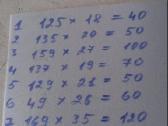 1 125 × 18 = 40
2 135 × 20 = 50
3 159 × 27 = 100
4 137 × 19 = 70
5 129 × 28 = 50
6 49 × 28 = 60
7 169 × 35 = 120